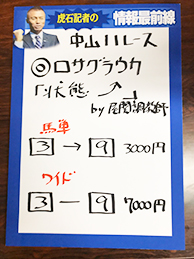 虎石記者の
情報最前線
中山11レース
◎ロサグラウカ
「状態」
by 尾関調教師
馬単
3→9 3000円
ワイド
3－9 7000円